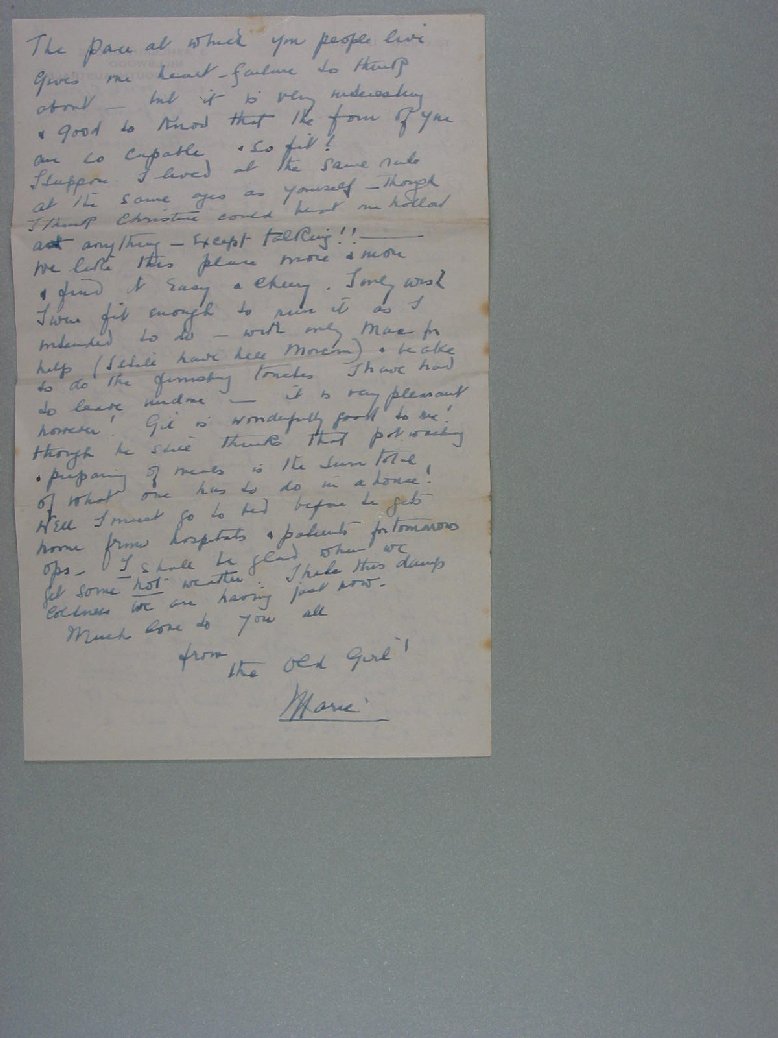 The pace at which you people live
gives me heart-failure to think
about — but it is very interesting
& good to know that the four of you
are so capable & so fit!
I suppose I lived at the same rate
at the same ages as yourself — though
I think Christine could beat me hollow
at anything — except talking!! —
We like this place more & more
& find it easy & cheery. I only wish
I was fit enough to run it as I
intended to do — with only Mac for
help (I still have here) & be able
to do the finishing touches I have had
to leave undone — it is very pleasant
however! Gil is wonderfully good to me!
though he still thinks that pot washing
& preparing of meals is the sum total
of what one has to do in a house!
Well I must go to bed before he gets
home from hospitals & patients for tomorrows
ops — I shall be glad when we
get some hot weather. I hate this damp
coldness we are having just now.
Much love to you all
from
the Old Girl!
Marie